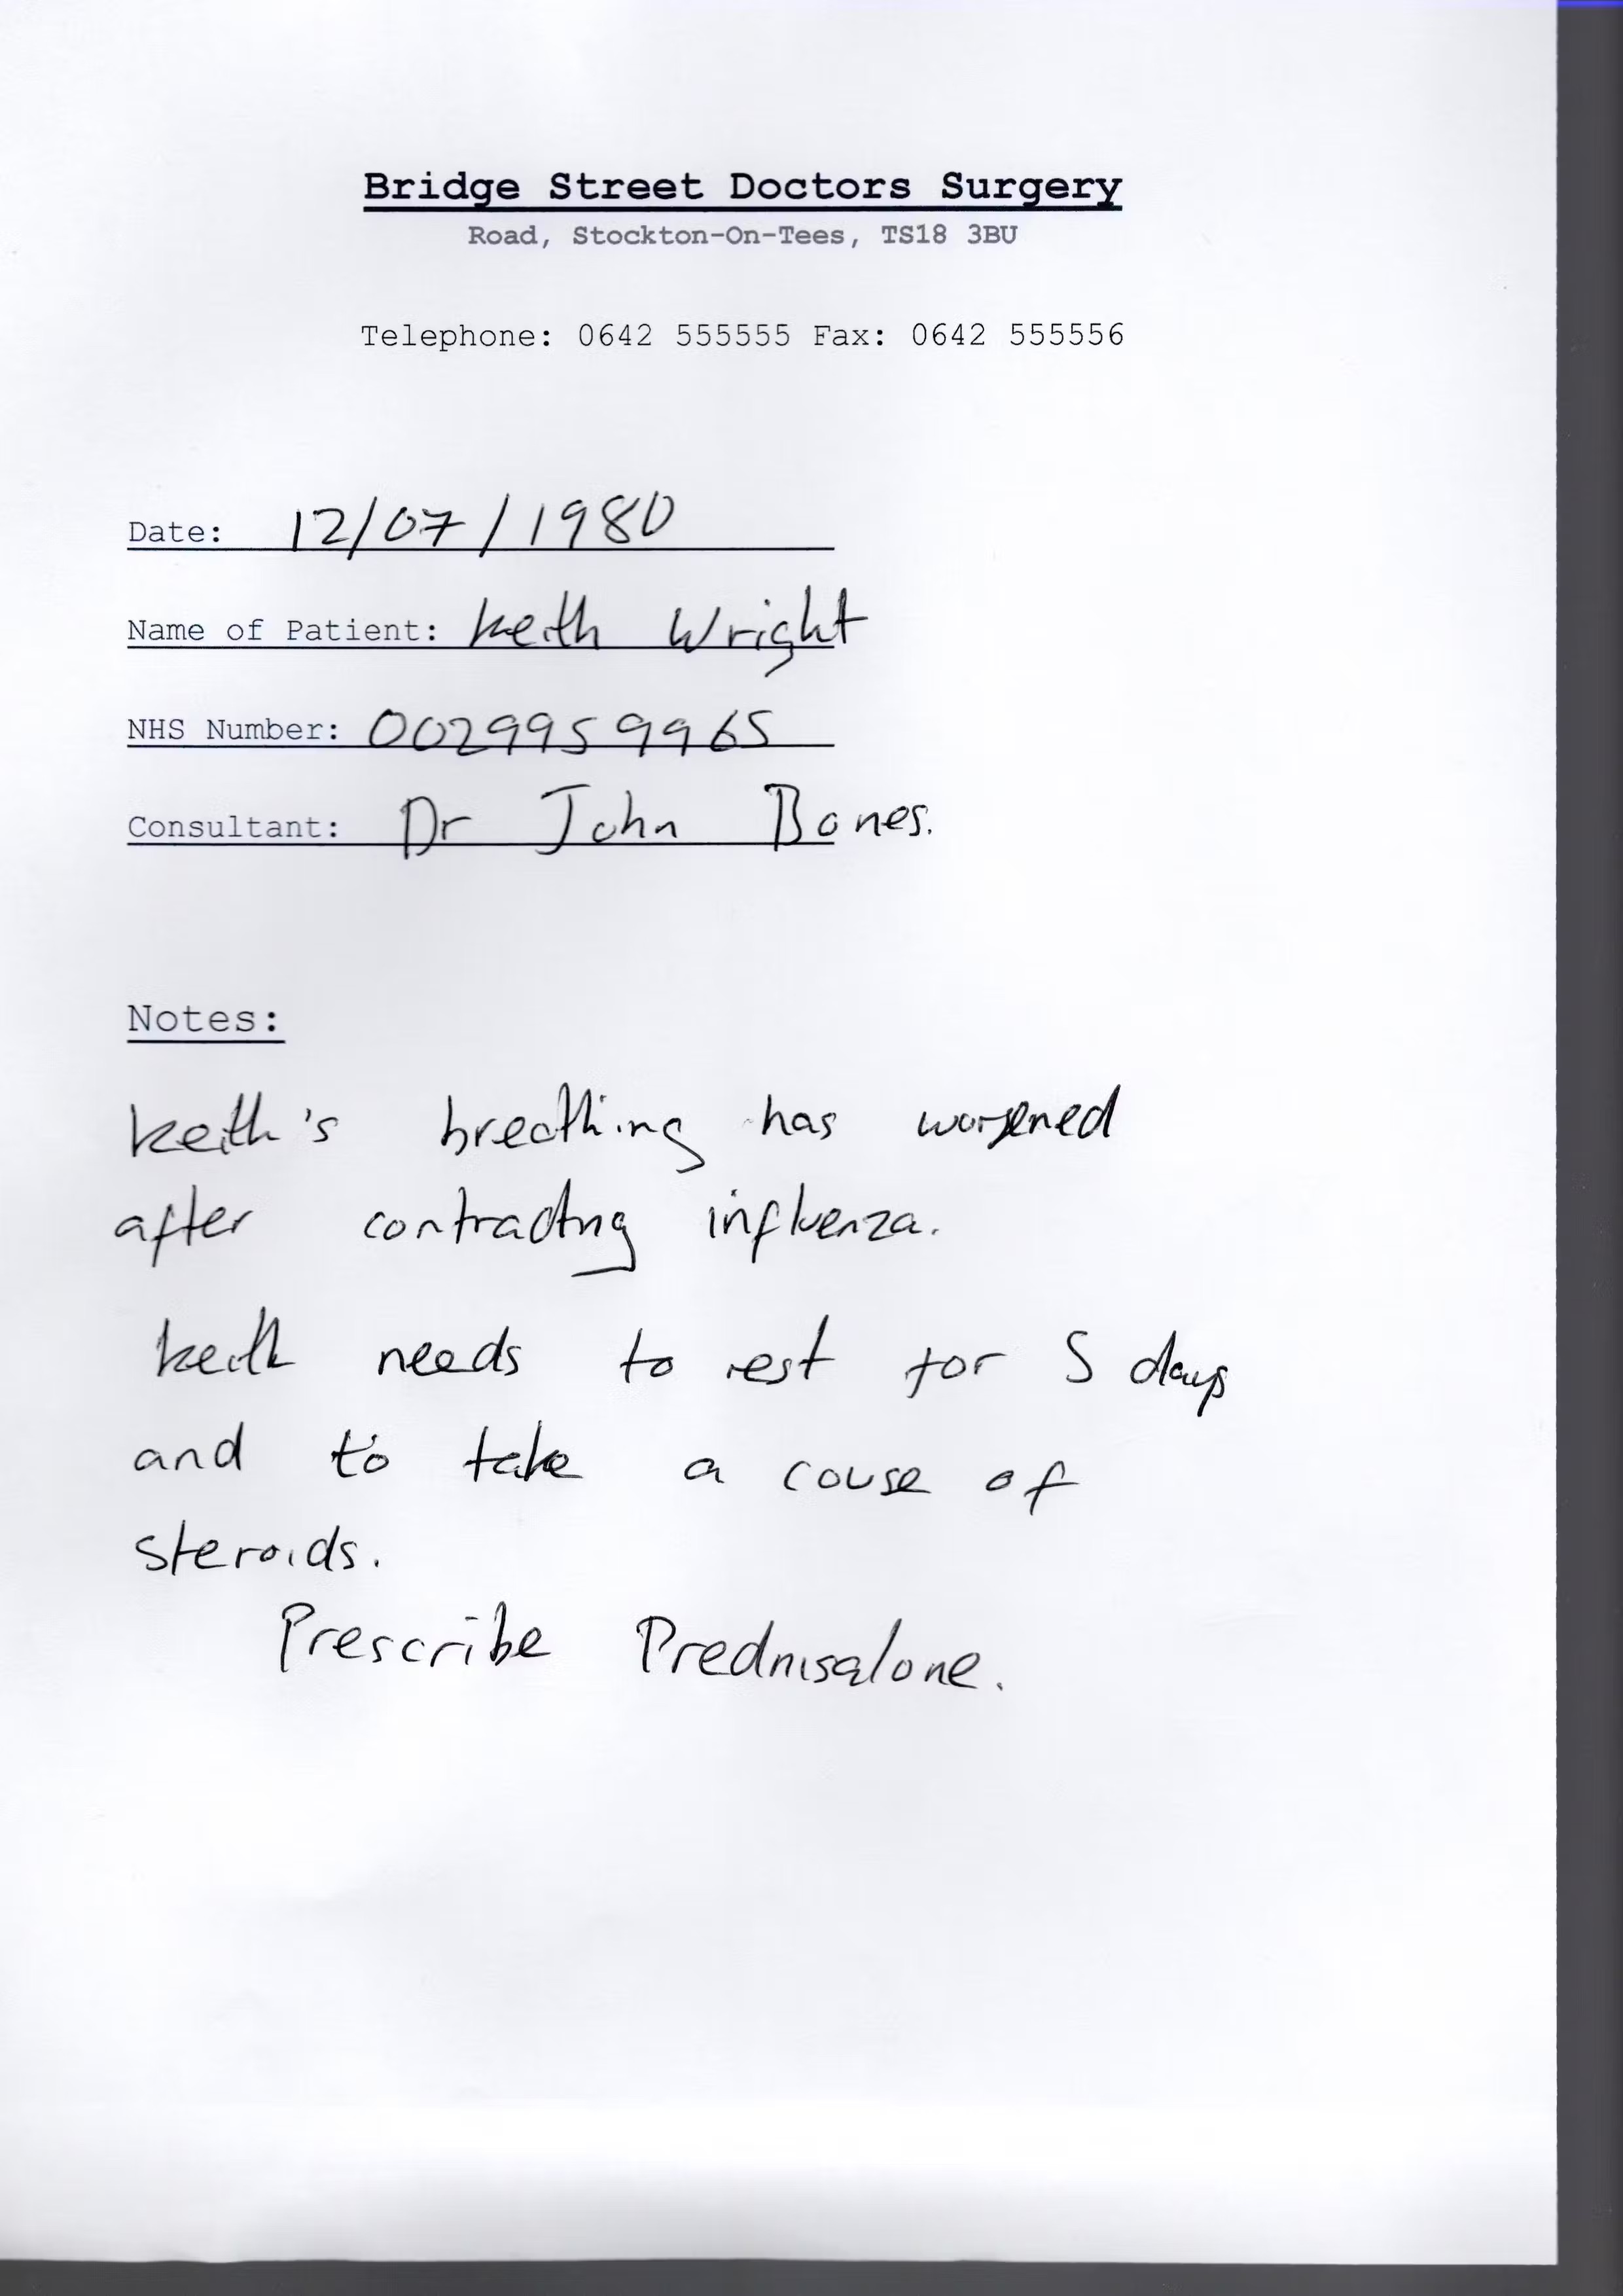 Bridge Street Doctors Surgery
Road, Stockton-On-Tees, TS18 3BU
Telephone: 0642 555555 Fax: 0642 555556
Date: 12/07/1980
Name of Patient: Keith Wright
NHS Number: 0029959965
Consultant: Dr John Bones.
Notes:
Keith's breathing has worsened
after contracting influenza.
Keith needs to rest for 5 days
and to take a couse of
steroids.
Prescribe Prednisalone.